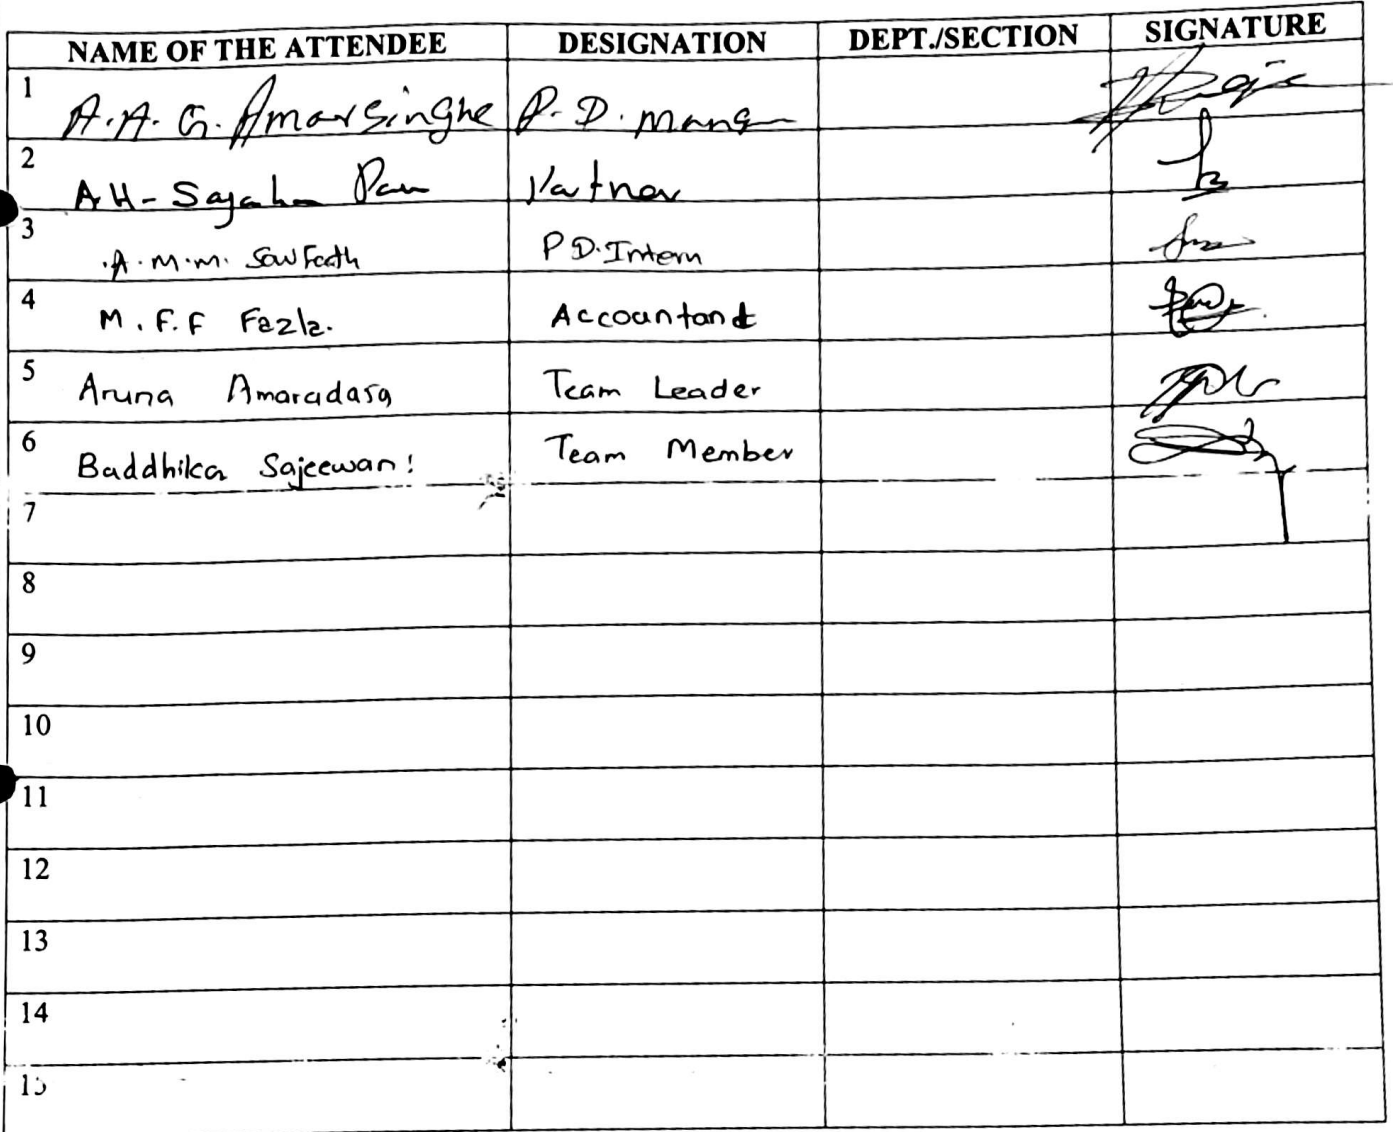 NAME OF THE ATTENDEE DESIGNATION DEPT./SECTION SIGNATURE
1 A.A.G. Amarsinghe P.D. mang
2 A.H-
3 A.M.M. Sowfath P D.Intern
4 M.F.F Fazla. Accountant
5 Aruna Amaradasa Team Leader
6 Buddhika Sajeewani Team Member
7
8
9
10
11
12
13
14
15